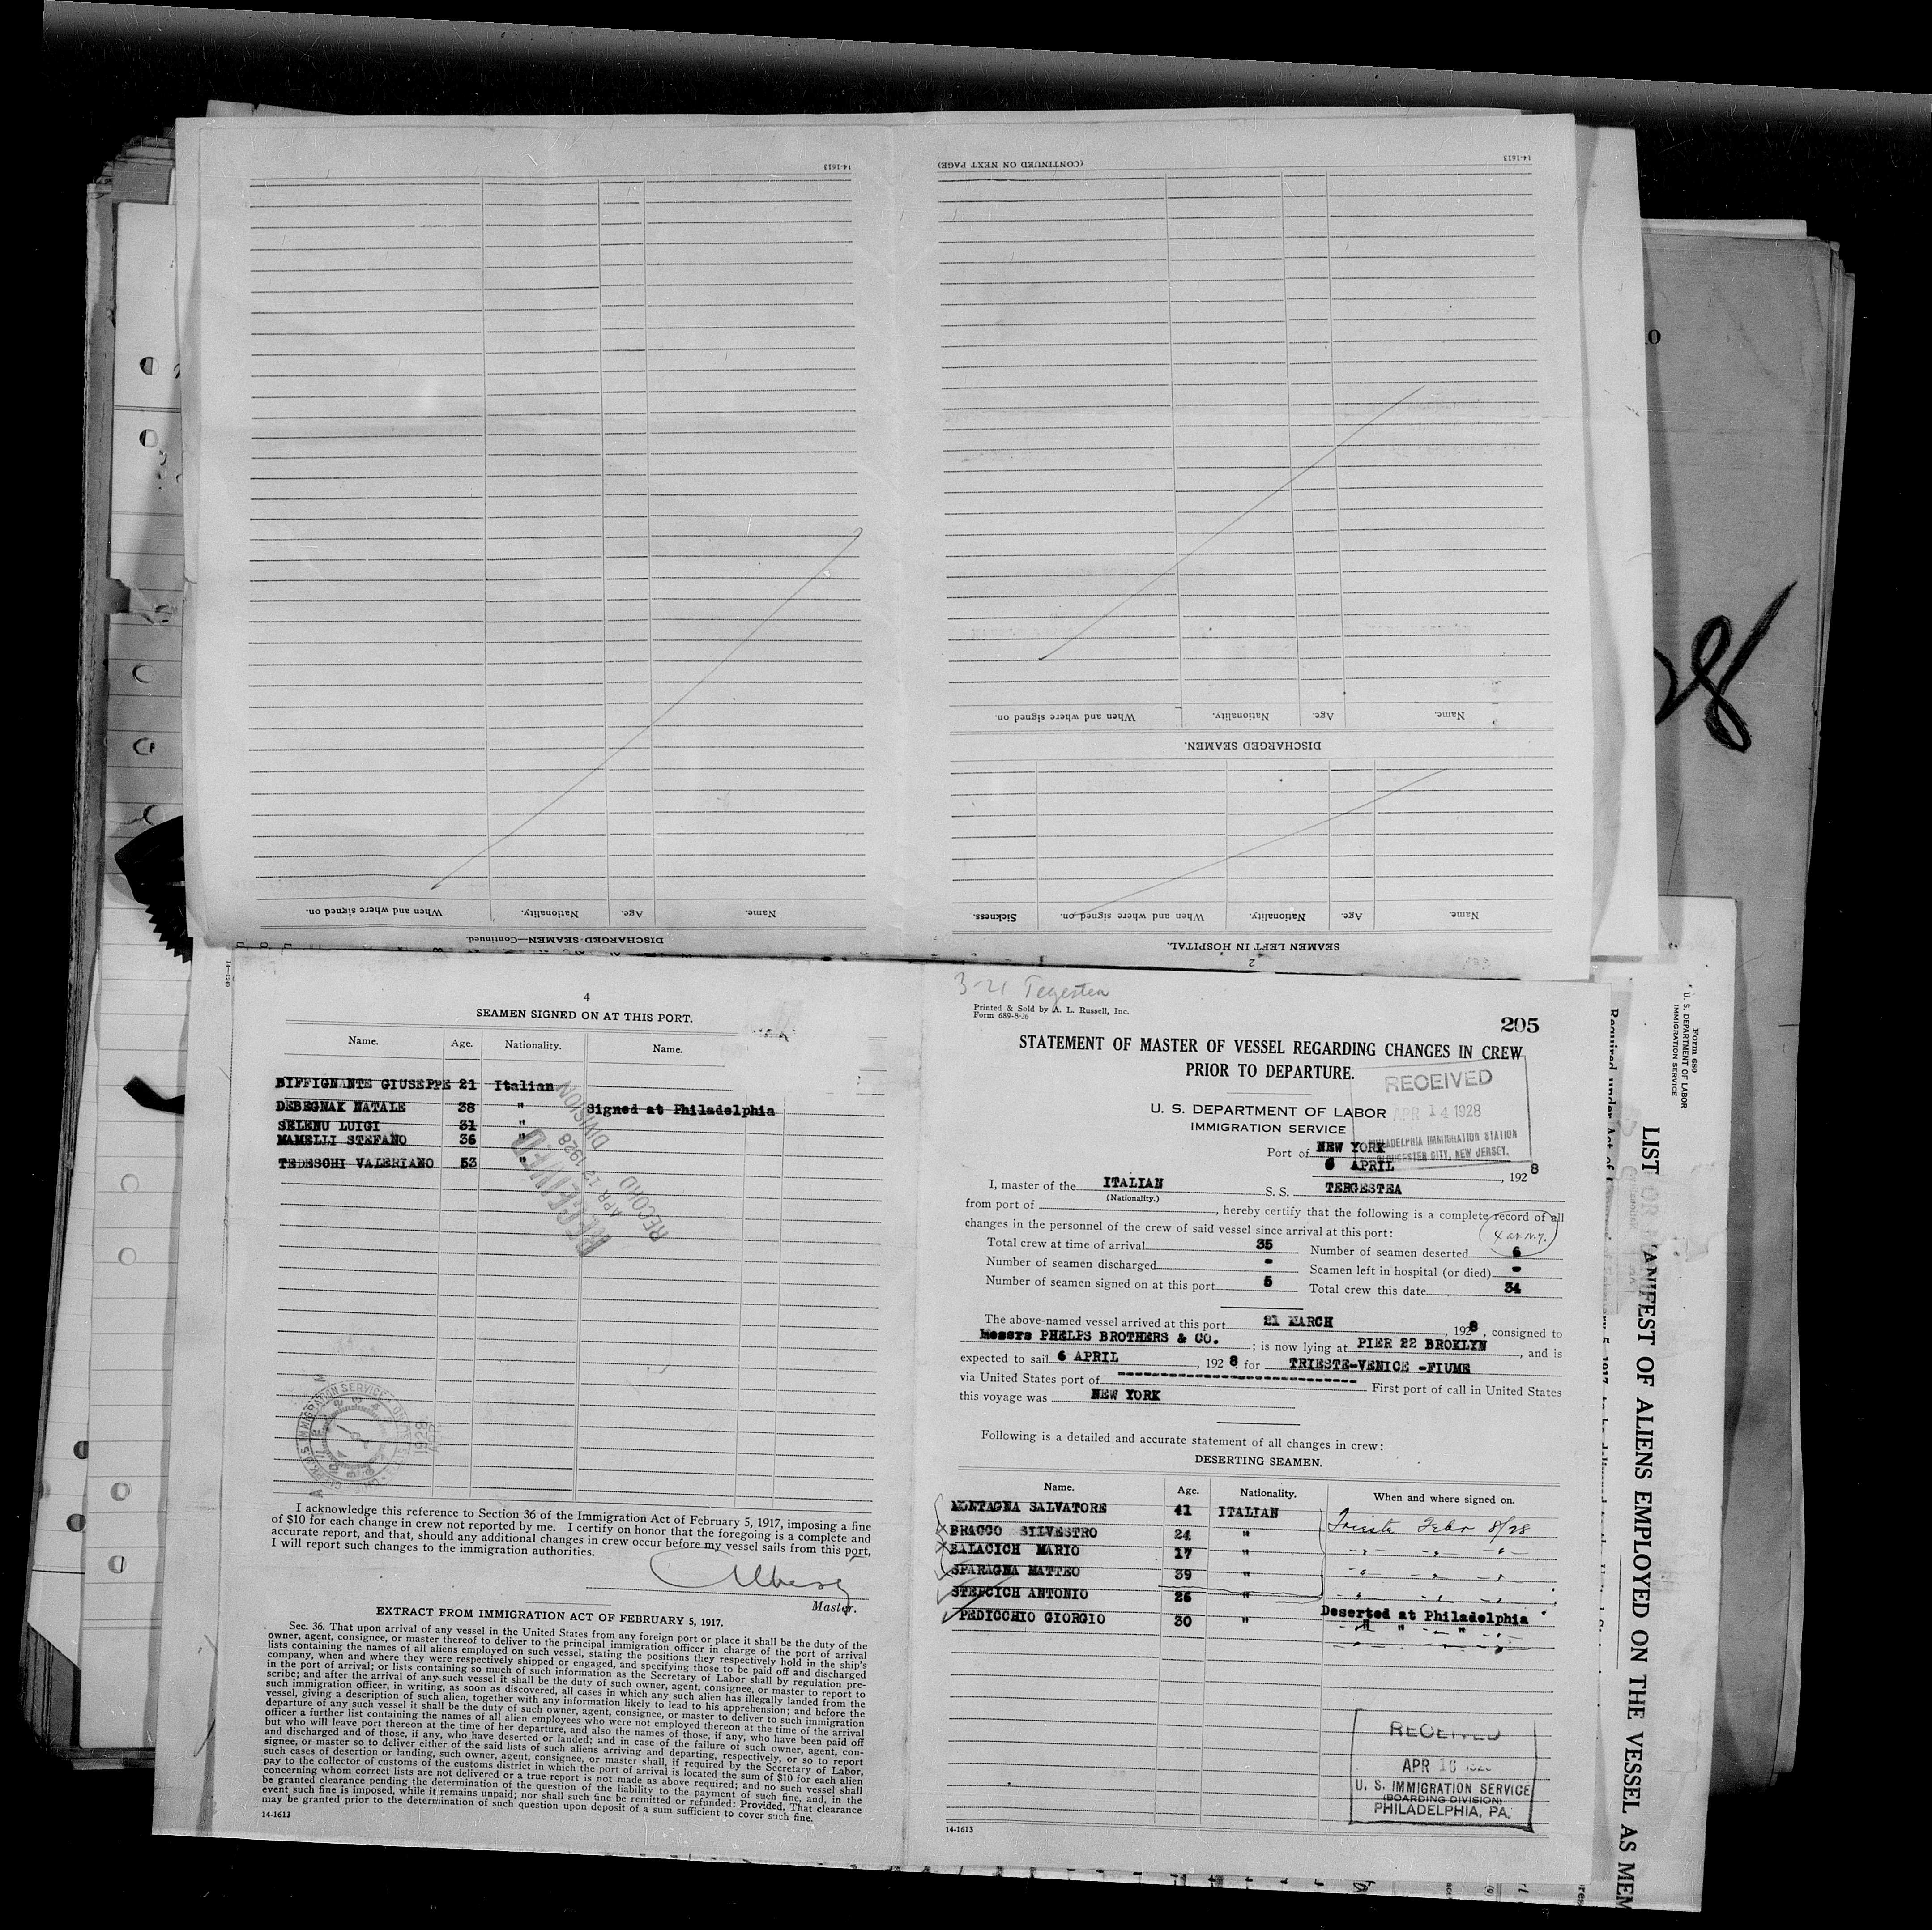 14-1613
(CONTINUED ON NEXT PAGE)
14-1613
Name. Age. Nationality. When and where signed on.
DISCHARGED SEAMEN.
Name. Age. Nationality. When and where signed on. Sickness.
SEAMEN LEFT IN HOSPITAL.
2
Name. Age. Nationality. When and where signed on.
DISCHARGED SEAMEN—Continued.
28
4
SEAMEN SIGNED ON AT THIS PORT.
Name. Age. Nationality. Name.
BIFFIGNANTE GIUSEPPE 21 Italian
DEBEGNAK NATALE 38 " Signed at Philadelphia
SELENU LUIGI 31 "
MAMELLI STEFANO 36 "
TEDESCHI VALERIANO 53 "
RECEIVED
APR 17 1928
RECORD DIVISION
1928
I acknowledge this reference to Section 36 of the Immigration Act of February 5, 1917, imposing a fine
of $10 for each change in crew not reported by me. I certify on honor that the foregoing is a complete and
accurate report, and that, should any additional changes in crew occur before my vessel sails from this port,
I will report such changes to the immigration authorities.
Master.
EXTRACT FROM IMMIGRATION ACT OF FEBRUARY 5, 1917.
Sec. 36. That upon arrival of any vessel in the United States from any foreign port or place it shall be the duty of the
owner, agent, consignee, or master thereof to deliver to the principal immigration officer in charge of the port of arrival
lists containing the names of all aliens employed on such vessel, stating the positions they respectively hold in the ship's
company, when and where they were respectively shipped or engaged, and specifying those to be paid off and discharged
in the port of arrival; or lists containing so much of such information as the Secretary of Labor shall by regulation pre-
scribe; and after the arrival of any such vessel it shall be the duty of such owner, agent, consignee, or master to report to
such immigration officer, in writing, as soon as discovered, all cases in which any such alien has illegally landed from the
vessel, giving a description of such alien, together with any information likely to lead to his apprehension; and before the
departure of any such vessel it shall be the duty of such owner, agent, consignee, or master to deliver to such immigration
officer a further list containing the names of all alien employees who were not employed thereon at the time of the arrival
but who will leave port thereon at the time of her departure, and also the names of those, if any, who have been paid off
and discharged and of those, if any, who have deserted or landed; and in case of the failure of such owner, agent, con-
signee, or master so to deliver either of the said lists of such aliens arriving and departing, respectively, or so to report
such cases of desertion or landing, such owner, agent, consignee, or master shall, if required by the Secretary of Labor,
pay to the collector of customs of the customs district in which the port of arrival is located the sum of $10 for each alien
concerning whom correct lists are not delivered or a true report is not made as above required; and no such vessel shall
be granted clearance pending the determination of the question of the liability to the payment of such fine, and, in the
event such fine is imposed, while it remains unpaid; nor shall such fine be remitted or refunded: Provided, That clearance
may be granted prior to the determination of such question upon deposit of a sum sufficient to cover such fine.
14-1613
3-21 Tegestea
Printed & Sold by A. L. Russell, Inc.
Form 689-8-26
205
STATEMENT OF MASTER OF VESSEL REGARDING CHANGES IN CREW
PRIOR TO DEPARTURE.
RECEIVED
APR 14 1928
PHILADELPHIA IMMIGRATION STATION
GLOUCESTER CITY, NEW JERSEY.
U. S. DEPARTMENT OF LABOR
IMMIGRATION SERVICE
Port of NEW YORK
6 APRIL, 1928
I, master of the ITALIAN S. S. TERGESTEA
(Nationality.)
from port of , hereby certify that the following is a complete record of all
changes in the personnel of the crew of said vessel since arrival at this port:
4 at N.Y.
Total crew at time of arrival 35 Number of seamen deserted 6
Number of seamen discharged - Seamen left in hospital (or died) -
Number of seamen signed on at this port 5 Total crew this date 34
The above-named vessel arrived at this port 21 MARCH, 1928, consigned to
Messrs PHELPS BROTHERS & CO. ; is now lying at PIER 22 BROKLYN, and is
expected to sail 6 APRIL, 1928 for TRIESTE-VENICE -FIUME
via United States port of ---------------------------- First port of call in United States
this voyage was NEW YORK
Following is a detailed and accurate statement of all changes in crew:
DESERTING SEAMEN.
Name. Age. Nationality. When and where signed on.
MONTAGNA SALVATORE 41 ITALIAN
BRACCO SILVESTRO 24 " Trieste Febr 8/28
BALACICH MARIO 17 "
SPARAGNA MATTEO 39 "
STEPCICH ANTONIO 26 "
PEDICCHIO GIORGIO 30 " Deserted at Philadelphia
RECEIVED
APR 16 1928
U. S. IMMIGRATION SERVICE
(BOARDING DIVISION)
PHILADELPHIA, PA.
14-1613
Form 680
U. S. DEPARTMENT OF LABOR
IMMIGRATION SERVICE
LIST OR MANIFEST OF ALIENS EMPLOYED ON THE VESSEL AS MEM